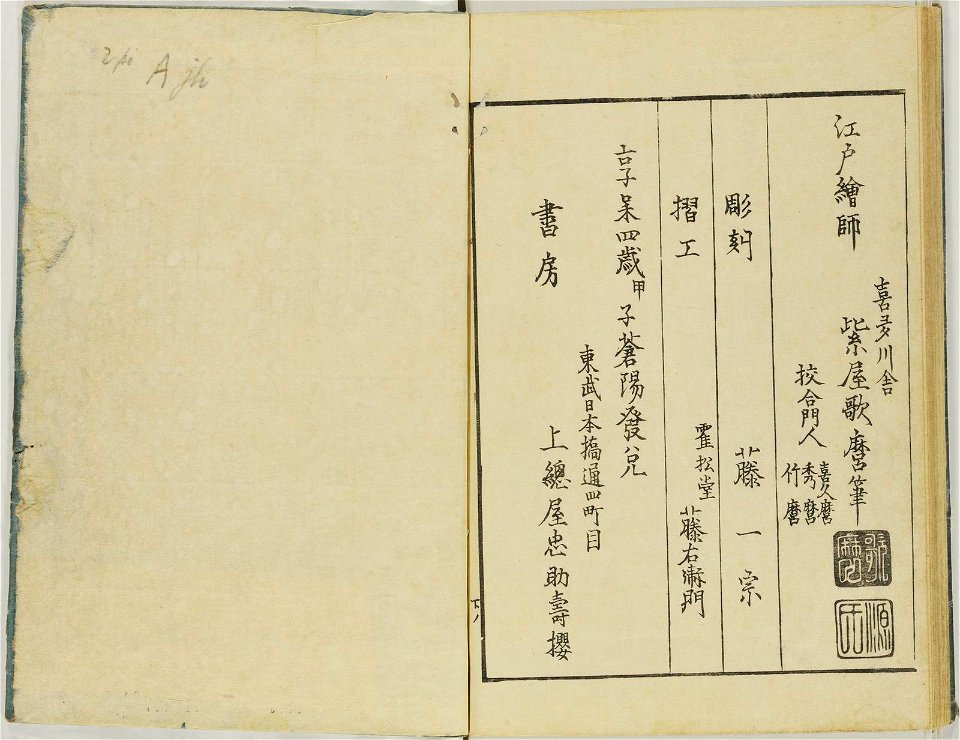 江戸繪師
喜多川舎
紫屋歌麿筆
歌麿
源氏
挍合門人
喜久麿
秀麿
竹麿
彫刻 藤一宗
摺工 霍松堂 藤右衛門
享和四歳甲子蒼陽發兌
東武日本橋通四町目
書房 上總屋忠助壽櫻
下ノ八
A